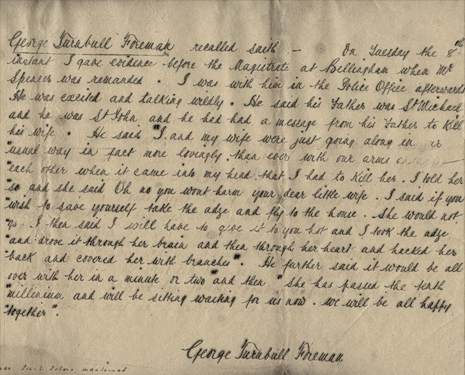 George Turnbull Foreman recalled saith — On Tuesday the 8th
instant I gave evidence before the Magistrate at Bellingham when Mr
Spencer was remanded. I was with him in the Police Office afterwards
He was excited and talking wildly. He said his Father was St Michael
and he was St John and he had had a message from his Father to kill
his wife. He said "I and my wife were just going along in our
"usual way in fact more lovingly than ever with our arms
"each other when it came into my head that I had to kill her. I told her
so and she said Oh no you wont harm your dear little wife. I said if you
wish to save yourself take the adze and fly to the house. She would not
"go. I then said I will have to give it to you hot and I took the adze
"and drove it through her brain and then through her heart and hacked her
"back and covered her with branches". He further said it would be all
over with her in a minute or two "and then "she has passed the tenth
"millenium, and will be sitting waiting for us now. we will be all happy
"together".
George Turnbull Foreman